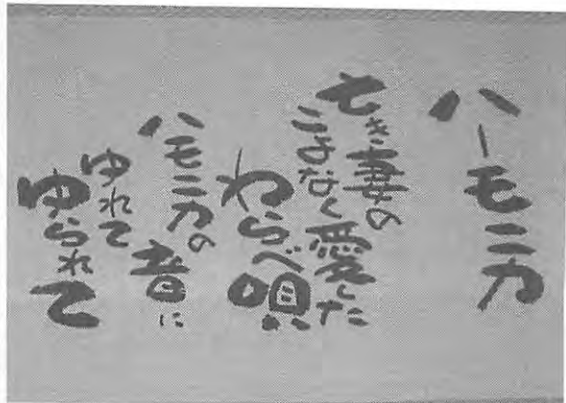 ハーモニカ
亡き妻の
こよなく愛した
わらべ唄
ハモニカの音に
ゆれて
ゆられて